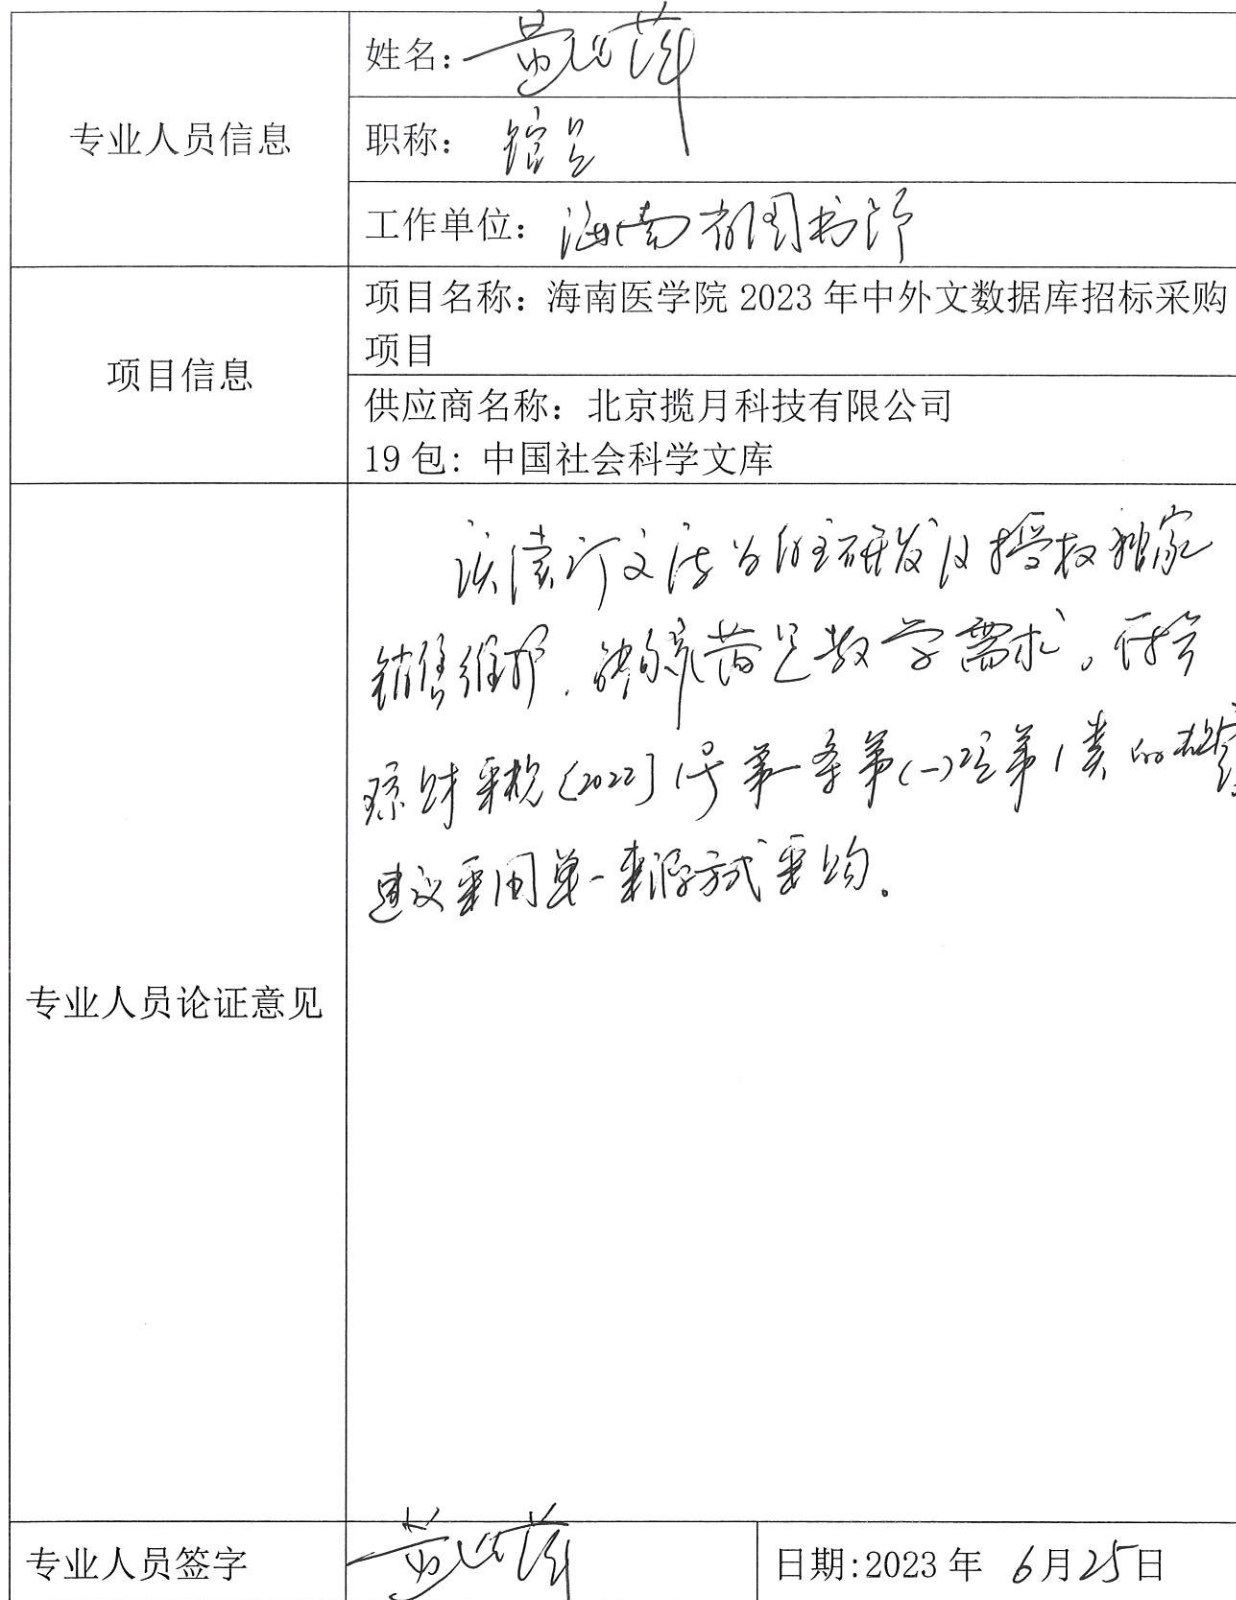 专业人员信息
姓名：黄
职称：馆员
工作单位：海南省图书馆
项目信息
项目名称：海南医学院 2023 年中外文数据库招标采购
项目
供应商名称：北京揽月科技有限公司
19 包：中国社会科学文库
专业人员论证意见
该 为自主研发及授权独家
销售维护，能够满足教学需求。符合
琼财采规〔2022〕1号第一条第(一)项第1类的
建议采用单一来源方式采购。
专业人员签字
黄
日期:2023 年 6月25日